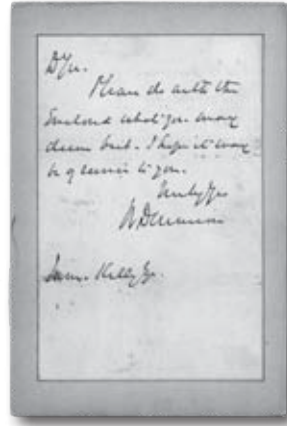 Please do with the
Enclosed what you may
deem best. I hope it may
be of service to you.
Truly Yr
Kelly